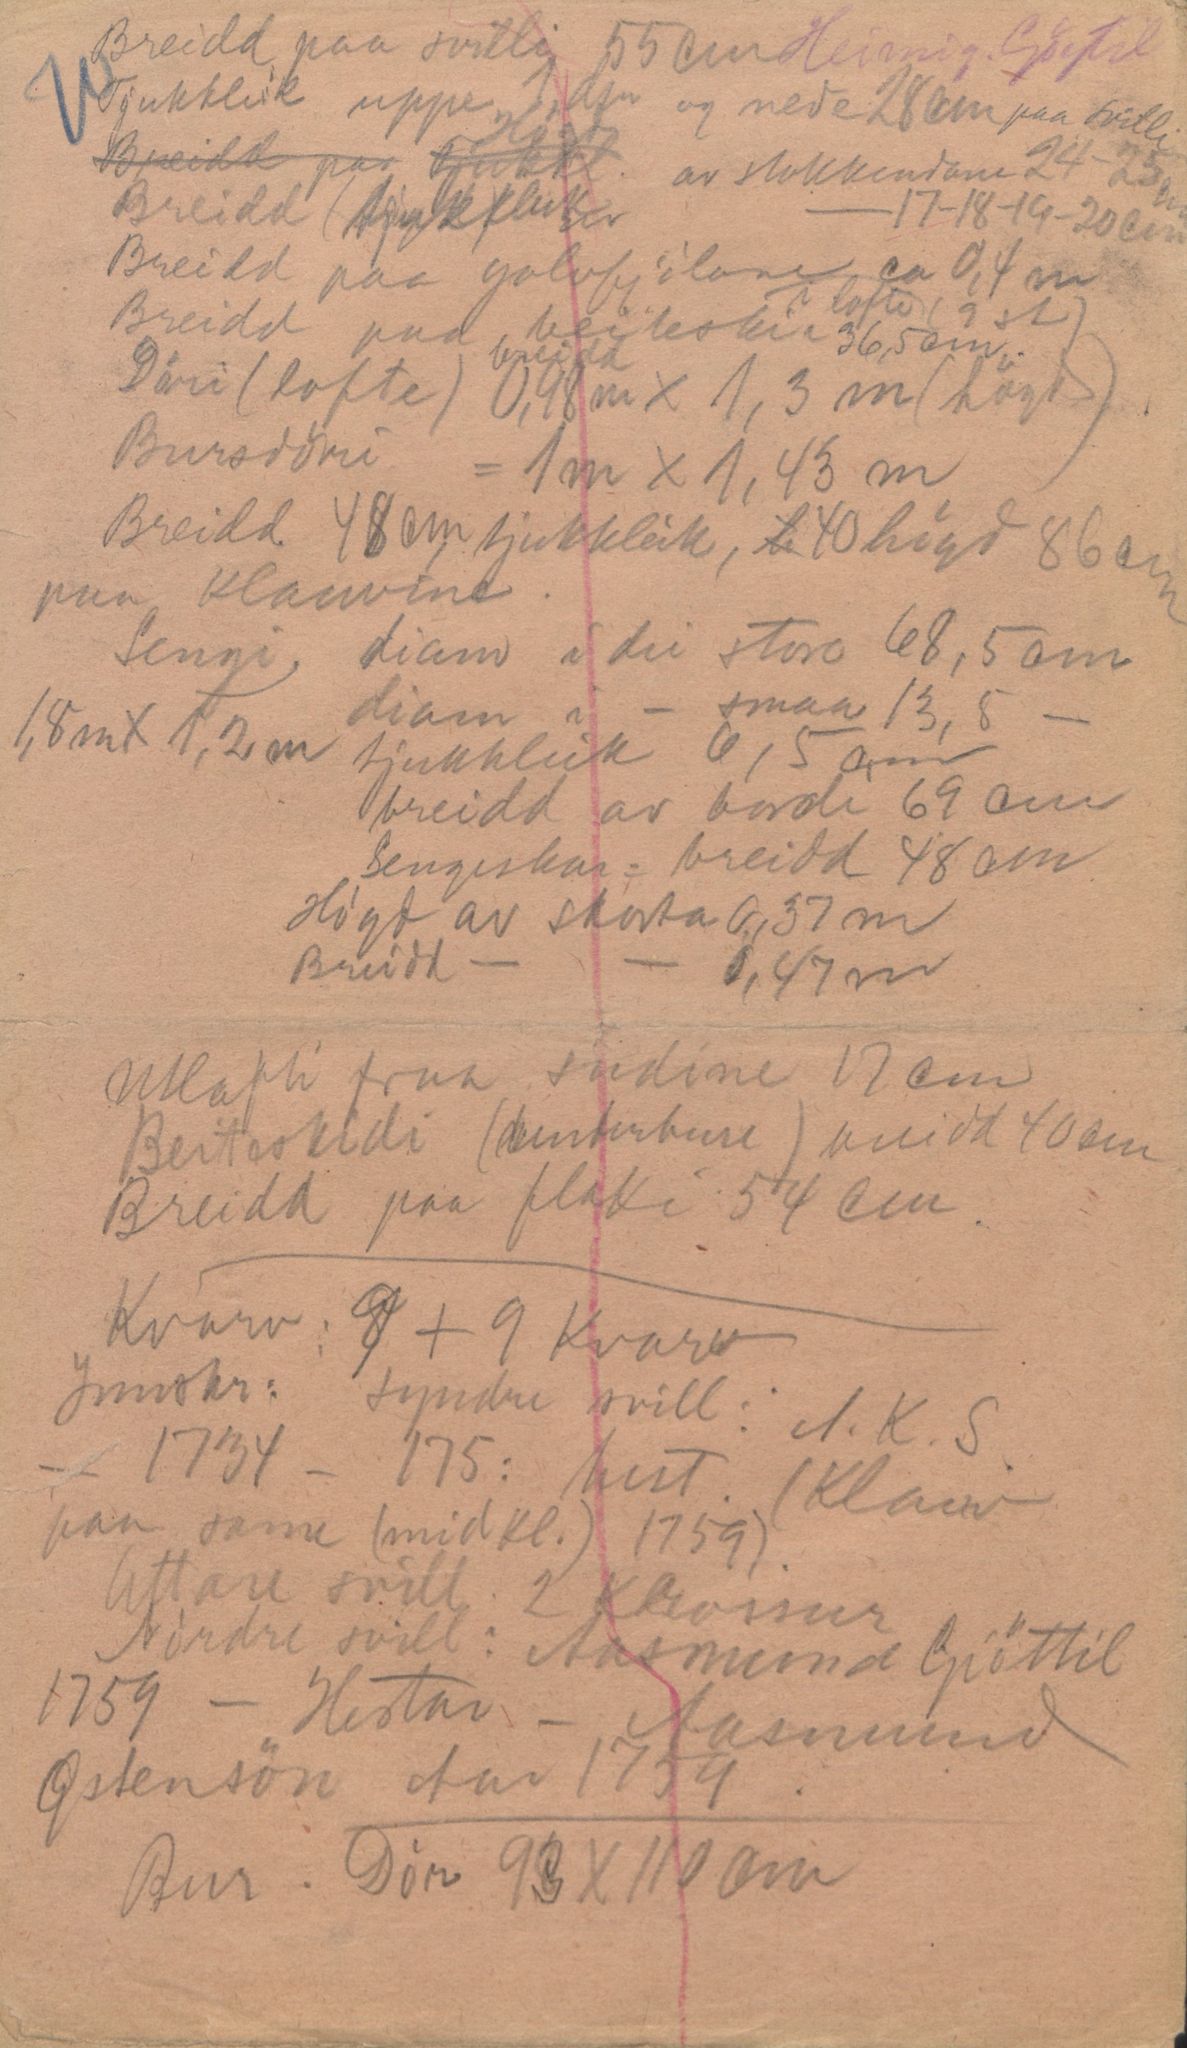 Breidd paa svilli 55 cm Heimig. Gjöttil
Tjukkleik uppe og nede 28 cm paa svilli
Breidd paa tjukkl. Högd av stokkendane 24-25 cm
Breidd (tjukkleik — 17-18-19-20 cm
Breidd paa golvfjölane ca 0,4 m
Breidd paa beiteski i lofte ( 2 st)
36,5 cm.
Döri (lofte) breidd 0,98 m x 1,3 m (högd)
Bursdöri = 1 m x 1,43 m
Breidd 48 cm, tjukkleik, 40 högd 86 cm
paa klauvine.
Sengi, diam i dei store 68,5 cm
1,8 m x 1,2 m diam i - smaa 13,5 —
tjukkleik 6,5 cm
breidd av borde 69 cm
Sengeskar = breidd 48 cm
Högd av skorta 0,37 m
Breidd — — 0,47 m
Utlafti fraa sudine 17 cm
Beiteskidi (underbure) breidd 40 cm
Breidd paa flaki 54 cm.
Kvarv: 9 + 9 Kvarv
Innskr: syndre svill: A. K. S.
— 1734 - 175: hest. (Klauv
paa same (midkl.) 1759).
Attare svill. 2 Klovinur
Nordre svill: Aasmund Gjöttil
1759 — Hestar — Aasmund
Østensön Aar 1759.
Bur. Dör 93 X 110 cm